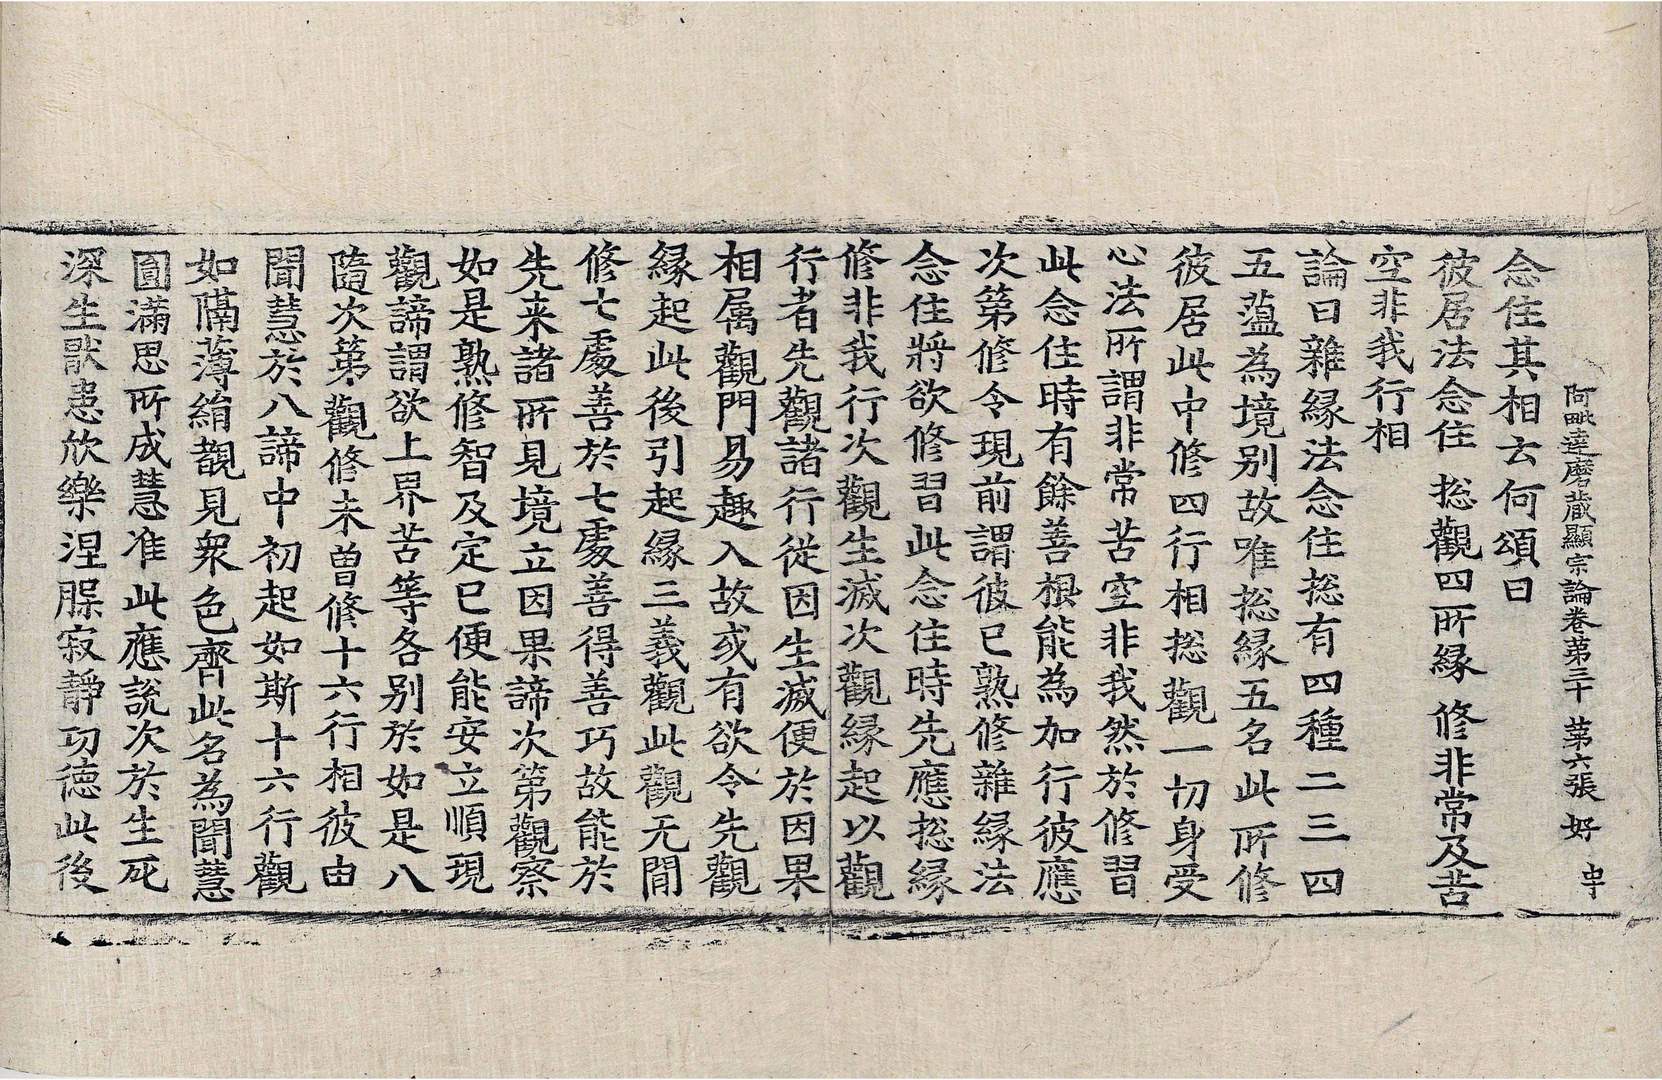 阿毗達磨藏顯宗論卷第三十 苐六張 好
念住其相云何頌曰
彼居法念住 捴觀四所縁 修非常及苦
空非我行相
論曰雜縁法念住捴有四種二三四
五蕰為境別故唯捴縁五名此所修
彼居此中修四行相捴觀一切身受
心法所謂非常苦空非我然於修習
此念住時有餘善根能為加行彼應
次第修令現前謂彼已熟修雜縁法
念住將欲修習此念住時先應捴縁
修非我行次觀生滅次觀縁起以觀
行者先觀諸行從因生滅便於因果
相属觀門易趣入故或有欲令先觀
縁起此後引起縁三義觀此觀无間
修七處善於七處善得善巧故能於
先来諸所見境立因果諦次第觀察
如是熟修智及定已便能安立順現
觀諦謂欲上界苦等各別於如是八
隨次第觀修未曽修十六行相彼由
聞慧於八諦中初起如斯十六行觀
如隔薄絹覩見衆色齊此名為聞慧
圓滿思所成慧准此應說次於生死
深生猒患欣樂涅脵寂静功德此後